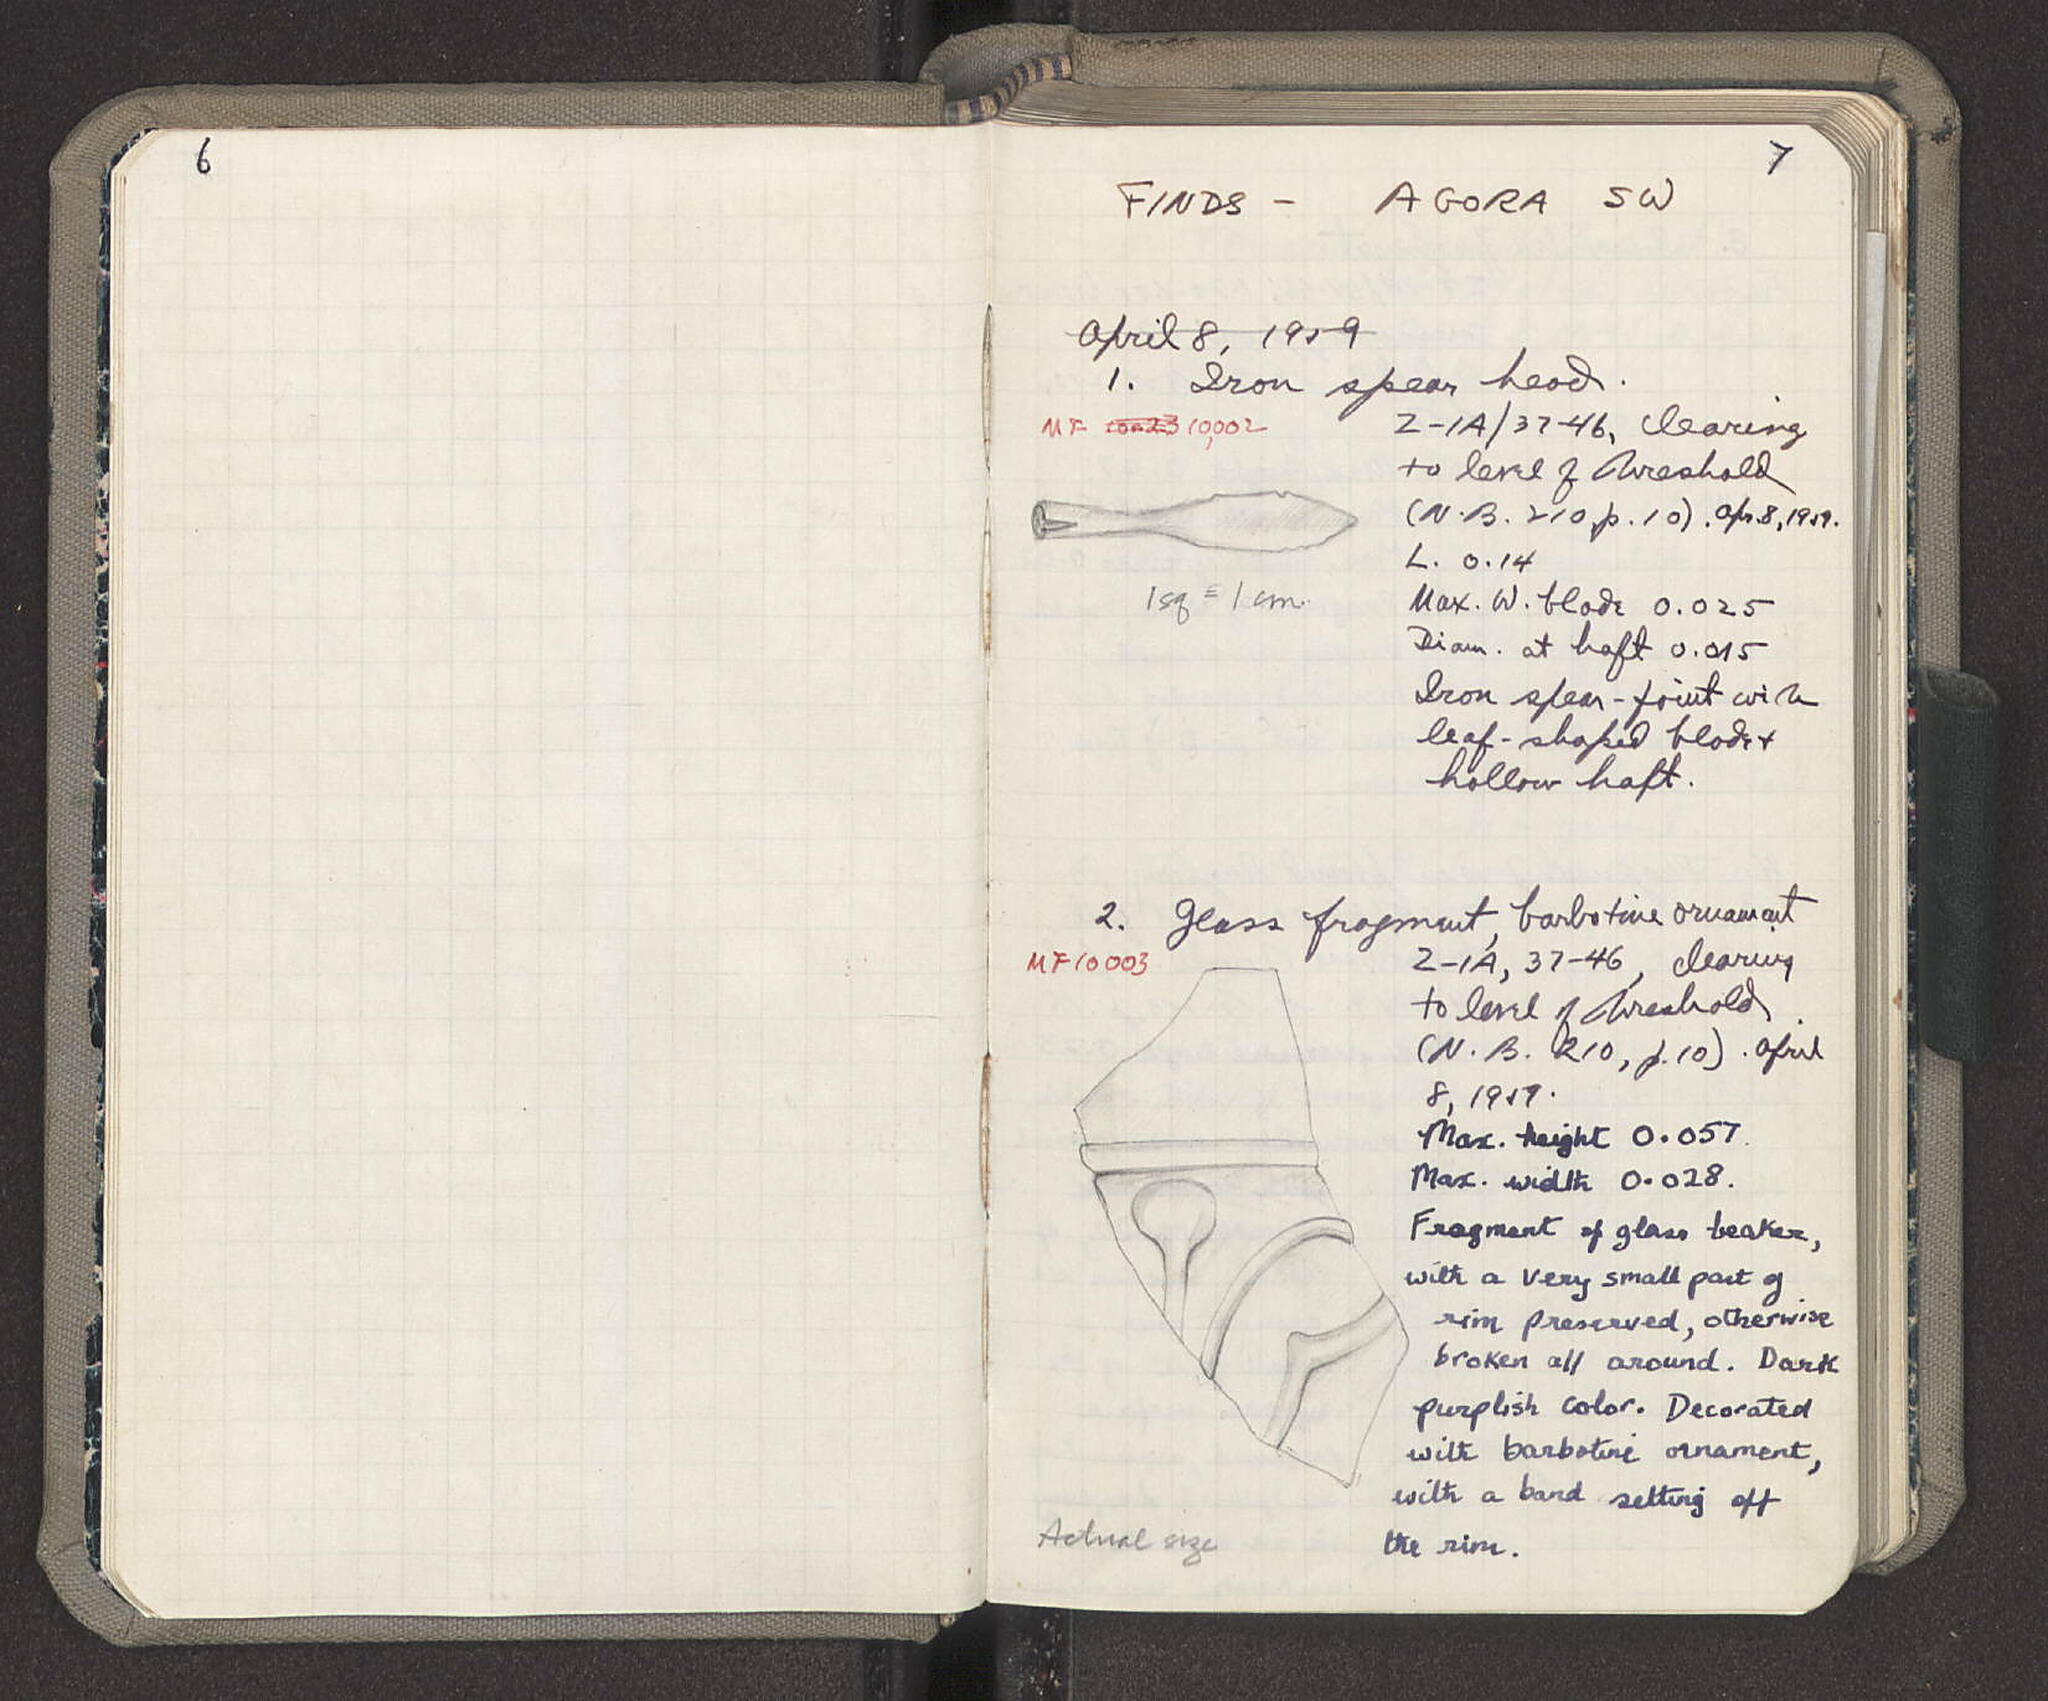 6
7
FINDS - AGORA SW
April 8, 1959
1. Iron spear head.
MF 10,002
Z-1A/37-46, clearing
to level of threshold
(N.B. 210, p. 10). Apr. 8, 1959.
L. 0.14
1 sq = 1 cm.
Max. W. blade 0.025
Diam. at haft 0.015
Iron spear-point with
leaf-shaped blade +
hollow haft.
2. Glass fragment, barbotine ornament
MF 10003
Z-1A, 37-46, clearing
to level of threshold
(N.B. 210, p. 10). April
8, 1959.
Max. height 0.057.
Max. width 0.028.
Fragment of glass beaker,
with a very small part of
rim preserved, otherwise
broken all around. Dark
purplish color. Decorated
with barbotine ornament,
with a band setting off
the rim.
Actual size